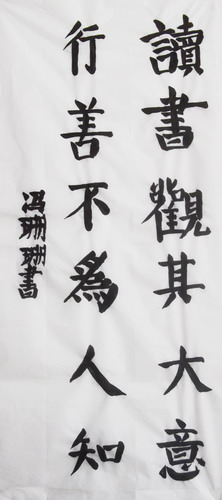 讀書觀其大意
行善不為人知
冯珊珊書